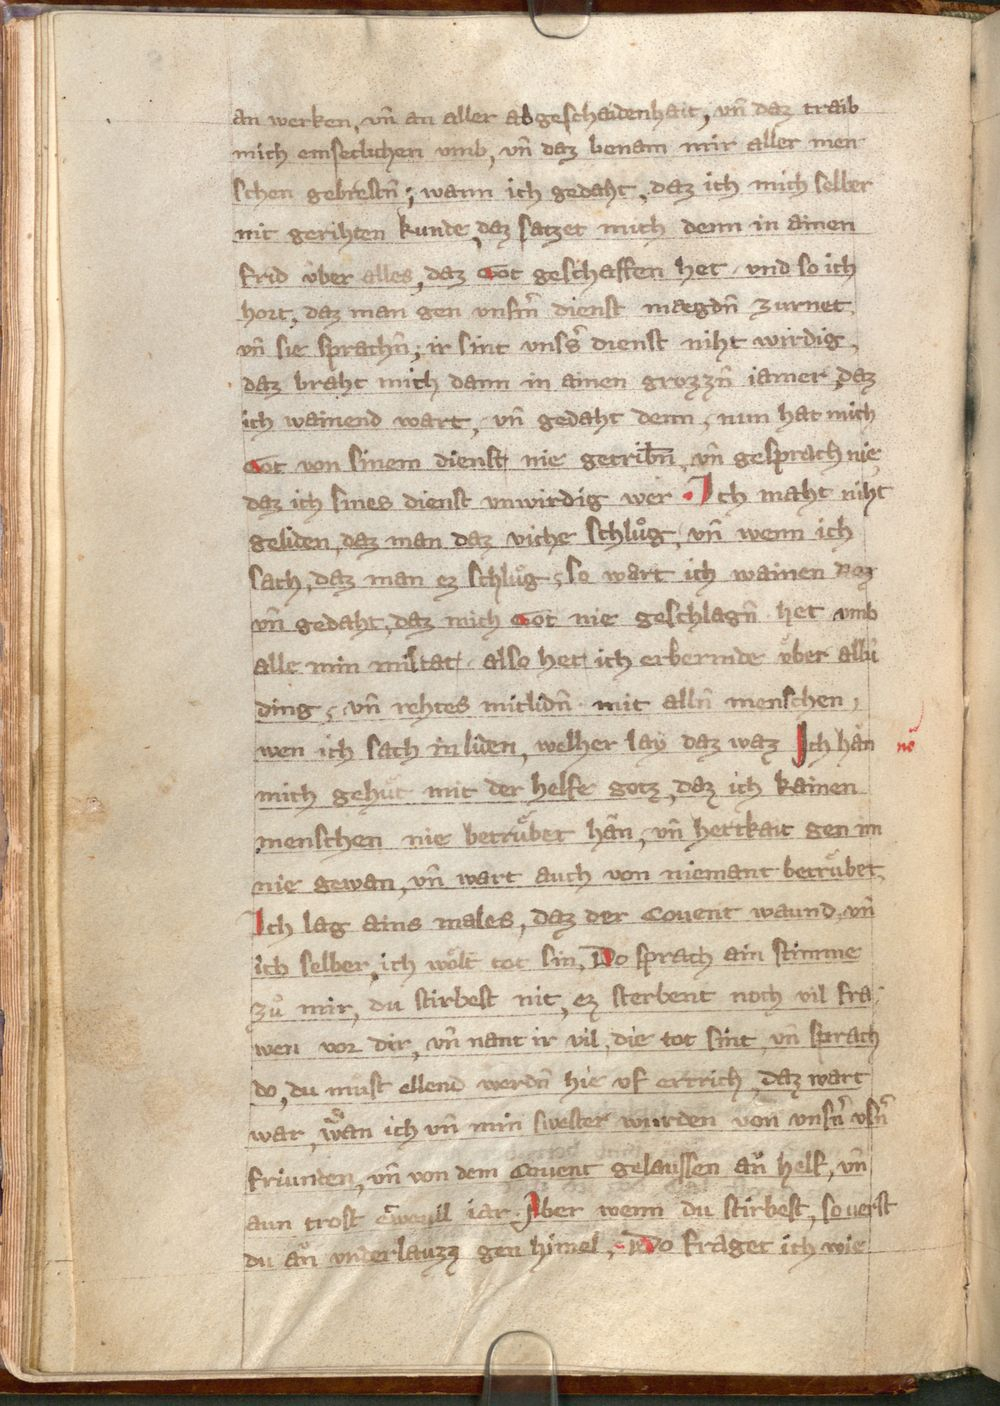 an werken, vn̄ an aller abgeschaidenhait, vn̄ daz traib
mich emseclichen vmb, vn̄ daz benam mir aller men
schen gebrestn̄; wann ich gedaht, daz ich mich selber
nit gerihten kunde, daz satzet mich denn in ainen
frid v̍ber alles, daz Got geschaffen het vnd so ich
hort, daz man gen vnsrn̄ dienst maegdn̄ zurnet
vn̄ sie sprachn̄, ir sint vnsˢ dienst niht wirdig,
daz braht mich dann in ainen grozzn̄ iamer, daz
ich wainend wart, vn̄ gedaht denn, nun hat mich
Got von sinem dienst nie getribn̄, vn̄ gesprach nie
daz ich sines dienst vnwirdig wer. Ich maht niht
geliden, daz man daz viche schlůg, vn̄ wenn ich
sach, daz man ez schlůg, so wart ich wainen
vn̄ gedaht, daz mich Got nie geschlagn̄ het vmb
alle min mistat also het ich erbermde v̍ber allu̍
ding, vn̄ rehtes mitlidn̄ mit alln̄ menschen,
wen ich sach in liden, welher lay daz waz Ich hān no͛
mich gehůt mit der helfe gotz, daz ich kainen
menschen nie betru̍bet hān, vn̄ hertkait gen im
nie gewan, vn̄ wart auch von niemant betru̍bet,
Ich lag ains males, daz der Couent waund, vn̄
ich selber, ich wo̍lt tot sin, Do sprach ain stimme
zů mir, du stirbest nit, ez sterbent noch vil fra
wen vor dir, vn̄ nant ir vil, die tot sint, vn̄ sprach
do, du must ellend werdn̄ hie vf ertrich, daz wart
war, wan ich vn̄ min swester wurden von vnsn̄ vsn̄
friunden, vn̄ von dem Couent gelaussen an̄ helf, vn̄
aun trost iar. Aber wenn du stirbest, so verst
du an̄ vnderlauzz gen himel, Do fraget ich wie